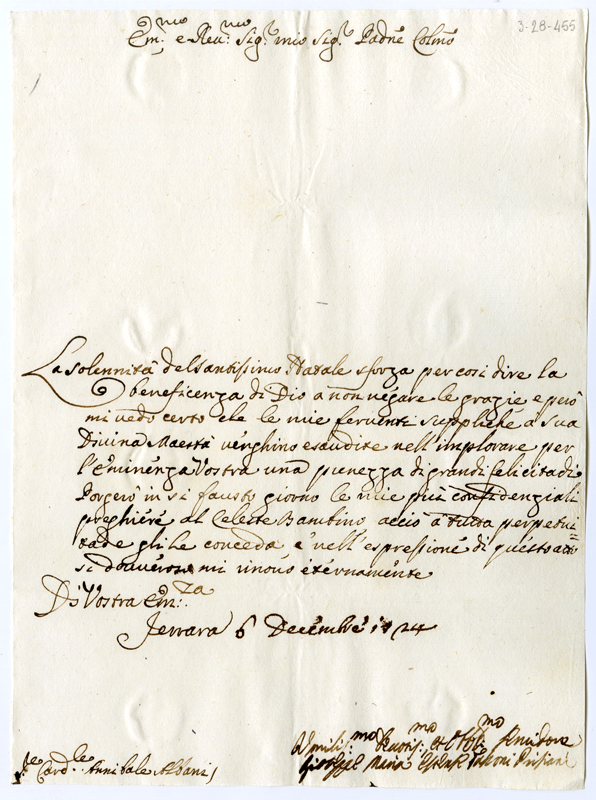 3-28-455
Em.mo e Reu.mo Sig.r mio Sig.r Padne Colmo
La solennità del santissimo Natale sforza per così dire la
beneficenza di Dio a non negare le grazie e però
mi uedo certo che le mie feruenti suppliche a sua
Diuina Maestà uenghino esaudite nell'implorare per
l'Eminenza Vostra una pienezza di grandi felicità di
Porgerò in sì fausto giorno le mie più confidenziali
preghiere al Celeste Bambino acciò a tutta perpetui=
tade gli le conceda e nell'espressione di questo
si douueroso mi rinouo eternamente
Di Vostra Em.za
Ferrara 6 Decembre 1724
Umilis.mo Deuotis.mo et Obb.mo Seruidore
Giuseppe Maria Estense Tassoni
Card.le Annibale Albani